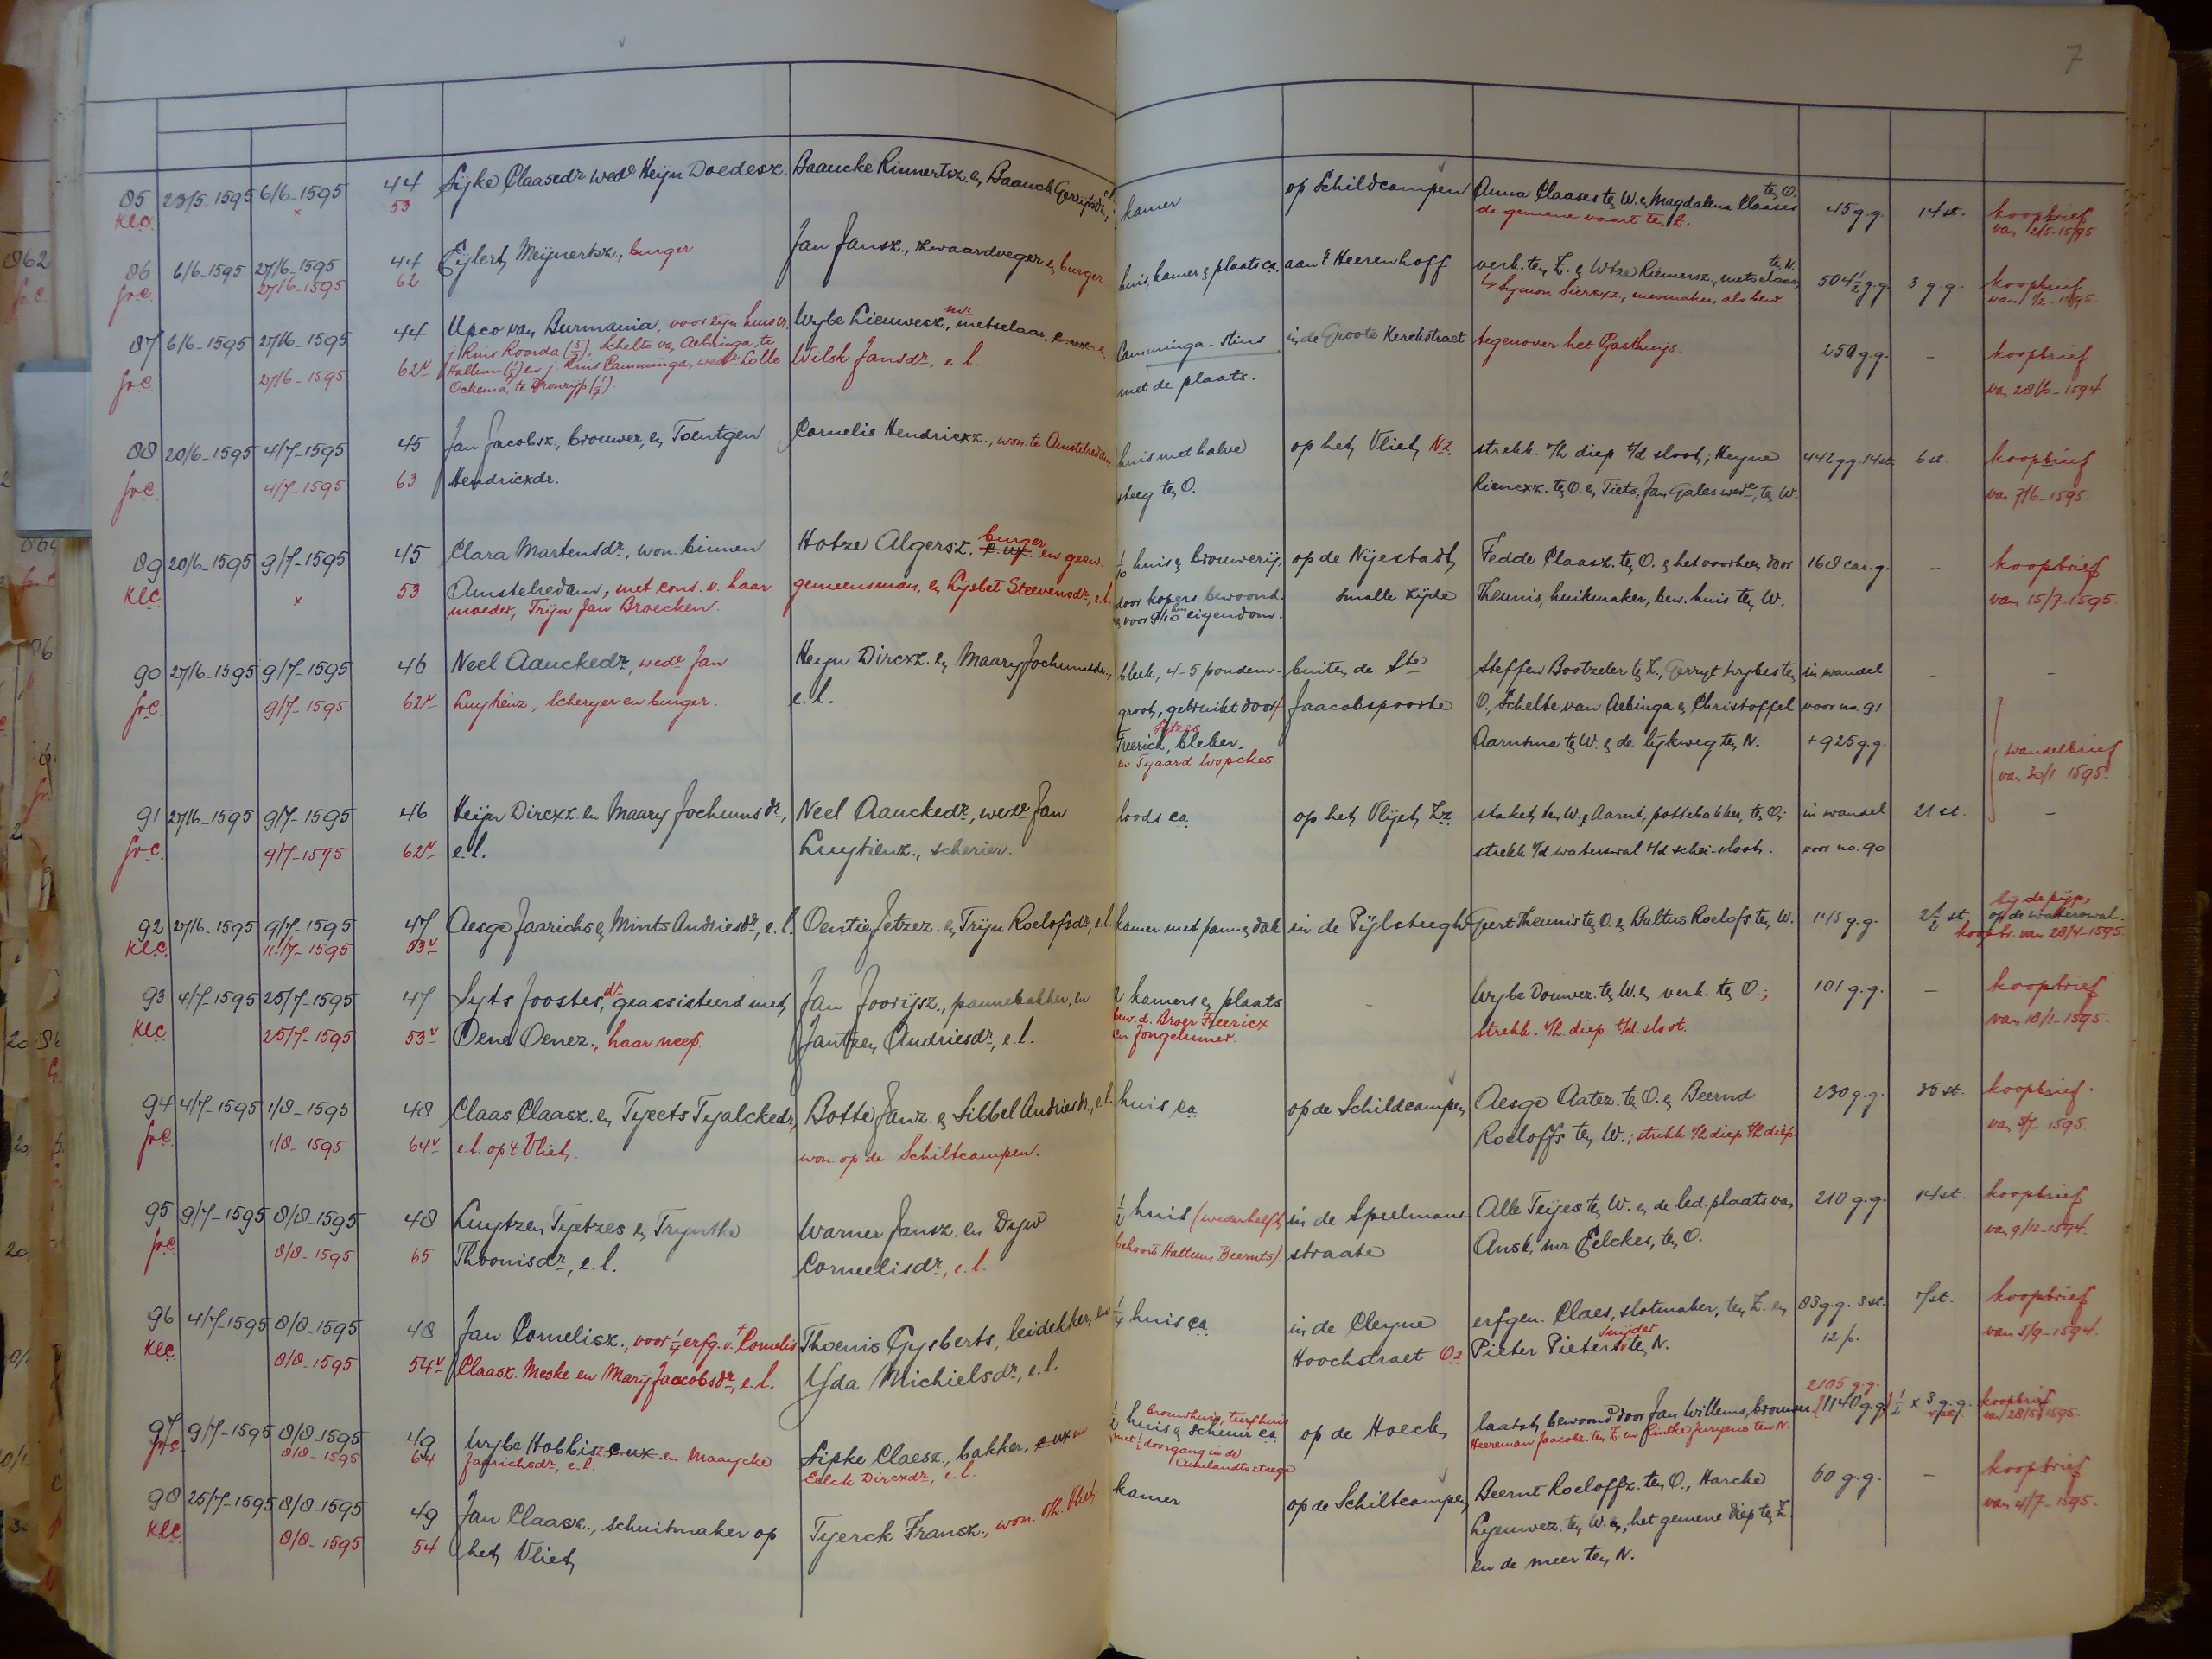 7
85 23/5-1595 6/6-1595 44 Sijke Claasedr wede Heijn Doedesz. Baancke Rinnertsz. en Baanck Gerrytsdr, e.l. kamer op Schildcampen Anna Claases ten W. en Magdalena Claases ten O. 45 g.g. 14 st. koopbrief
klc. x 53 de gemene vaart ten Z. van 2/5-1595
86 6/6-1595 27/6-1595 44 Eijlert Meijnertsz., burger Jan Jansz., zwaardveger en burger huis, kamer en plaats ca. aan 't Heerenhoff verk. ten Z. en Wtze Riemersz., metselaar, ten N. 504½ g.g. 3 g.g. koopbrief
gr.c. 27/6-1595 62 Symon Siercxz., mesmaker, als bew
87 6/6-1595 27/6-1595 44 Upco van Burmania, voor zijn huisvr. Wybe Lieuwesz., mr metselaar, c.ux. en Camminga-stins in de Groote Kerckstraet tegenover het Gasthuijs. 250 g.g. - koopbrief
j. Rins Roorda (5/7), Schelto van Aebinga, te
gr.c. 27/6-1595 62v Hallum (1/7) en j. Rins Camminga, wede Lolle Wilsk Jansdr, e.l. met de plaats. van 28/6-1594
Ockema, te Dronrijp (1/7).
88 20/6-1595 4/7-1595 45 Jan Jacobsz., brouwer, en Toentgen Cornelis Hendricxz., won. te Amstelredam huis met halve op het Vliet Nz. strekk. v/h diep t/d sloot; Heyne 442 gg. 14 st. 6 st. koopbrief
gr.c. 4/7-1595 63 Hendricxdr. steeg ten O. Riencxz. ten O. en Tiets, Jan Gales wede, ten W. van 7/6-1595.
89 20/6-1595 9/7-1595 45 Clara Martensdr, won. binnen Hotze Algersz. c.ux. burger en gesw. 1/10 huis en brouwerij, op de Nijestadt, Fedde Claasz. ten O. en het voorheen door 168 car.g. - koopbrief
klc. x 53 Amstelredam, met cons. v. haar gemeensman, en Lijsbet Steevensdr, e.l. door kopers bewoond smalle zijde Theunis, huikmaker, bew. huis ten W. van 15/7-1595.
moeder, Trijn Jan Broecken. en voor 9/10 hun eigendom.
90 27/6-1595 9/7-1595 46 Neel Aanckedr, wede Jan Heyn Dircxz. en Maary Jochumsdr., bleek, 4-5 pondem. buiten de Ste Steffen Bootzeler ten Z., Gerryt Wybes ten in wandel - -
gr.c. 9/7-1595 62v Luytienz., Scheryer en burger. e.l. groot, gebruikt door Jaacobspoorte O., Schelte van Aebinga en Christoffel voor no. 91
Freerich Sytezs, bleker. Aarntsma ten W. en de lijkweg ten N. + 925 g.g. wandelbrief
en Tjaard Wopckes. van 30/1-1595.
91 27/6-1595 9/7-1595 46 Heijn Dircxz. en Maary Jochumsdr, Neel Aanckedr, wede Jan loods ca. op het Vlijet Zz. staket ten W., Aarnt, pottebakker, ten O.; in wandel 21 st. -
gr.c. 9/7-1595 62v e.l. Luytienz., scherier. strekk. v/d waterswal t/d schei-sloot. voor no. 90
92 27/6-1595 9/7-1595 47 Aesge Jaarichs en Mints Andriesdr, e.l. Oentie Jetzez. en Trijn Roelofsdr, e.l. kamer met pannendak in de Pijlsteegh Geert Theunis ten O. en Baltus Roelofs ten W. 145 g.g. 2½ st. bij de pijp, op de waterswal.
klc. 11/7-1595 53v koopbr. van 28/4-1595
93 4/7-1595 25/7-1595 47 Syts Joostesdr, geassisteerd met Jan Joorijsz., pannebakker, en 2 kamers en plaats - Wybe Douwez. ten W. en verk. ten O.; 101 g.g. - koopbrief
klc. 25/7-1595 53v Oene Oenez., haar neef. Jantzen Andriesdr, e.l. bew. d. Broer Freericx en Jongelumer. strekk. v/h diep t/d sloot. van 18/1-1595.
94 4/7-1595 1/8-1595 48 Claas Claasz. en Tjeets Tjalckedr, Botte Janz. en Sibbel Andriesdr, e.l. huis ca. op de Schildcampen Aesge Aatez. ten O. en Beernd 230 g.g. 35 st. koopbrief.
gr.c. 1/8-1595 64v e.l. op 't Vliet. won. op de Schiltcampen. Roeloffs ten W.; strekk v/h diep t/h diep. van 3/7-1595.
95 9/7-1595 8/8-1595 48 Luytzen Tjetzes en Tryntke Warner Jansz. en Dyw ½ huis (wederhelft in de Speelmans- Alle Teijes ten W. en de led. plaats van 210 g.g. 14 st. koopbrief
gr.c. 8/8-1595 65 Thoonisdr, e.l. Corneelisdr, e.l. behoort Hattum Beernts). straate Ansk, mr Eelckes, ten O. van 9/12-1594.
96 4/7-1595 8/8-1595 48 Jan Cornelisz., voor ¼ erfg. v. † Cornelis Thoenis Gysberts, leidekker, en ¼ huis ca. in de Cleyne erfgen. Claes, slotmaker, ten Z. en 83 g.g. 3 st. 7 st. koopbrief
klc. 8/8-1595 54v Claasz. Meske en Marij Jaacobsdr, e.l. Yda Michielsdr, e.l. Hoochstraet Oz. Pieter Pieters Snijder ten N. 12 p. van 5/9-1594.
97 9/7-1595 8/8-1595 49 Wybe Hobbisz. c.ux. en Maaycke Sipke Claesz., bakker, c.ux en ½ huis en schuur ca. brouwhuis, turfhuis op de Hoeck, laatst bewoond door Jan Willems, brouwer. 2105 g.g. (1140 g.g.) ½ x 3 g.g. koopbrief
gr.c. 8/8-1595 64 Jaarichsdr, e.l. Eelck Dircxdr, e.l. met ½ doorgang in de Amelandtssteege Heereman Jaacobs. ten Z. en Rintke Juryens ten N. van 28/5-1595.
98 25/7-1595 8/8-1595 49 Jan Claasz., schuitmaker op Tjerck Fransz., won. o/h. Vliet kamer op de Schiltcampen Beernt Roeloffz. ten O., Harcke 60 g.g. - koopbrief
klc. 8/8-1595 54 het Vliet, Lyeuwez. ten W. en het gemene diep ten Z. van 4/7-1595.
en de meer ten N.